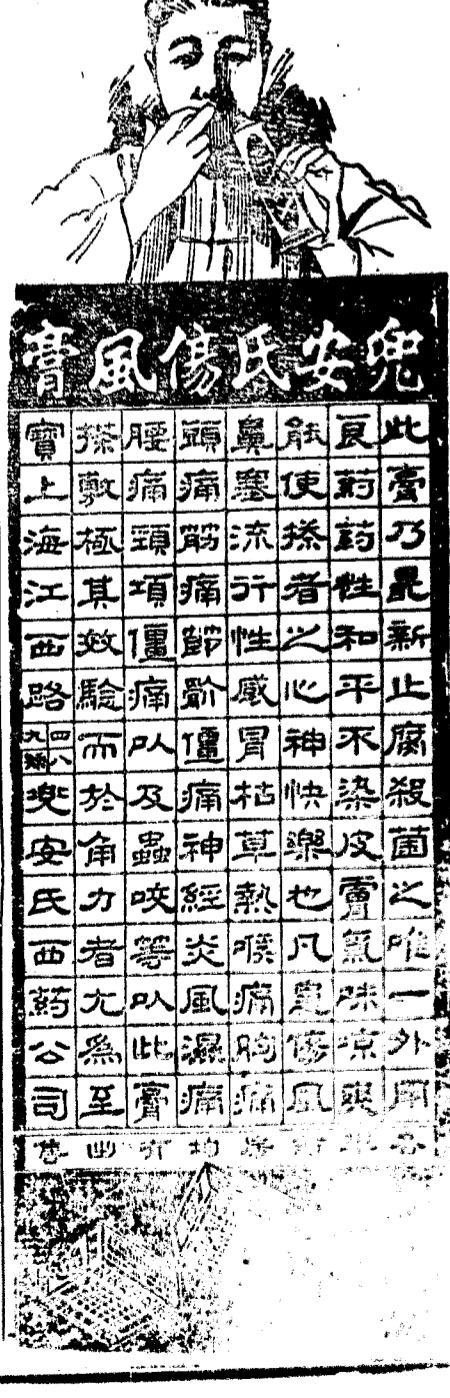 兜安氏傷風膏
此膏乃最新止腐殺菌之唯一外用
良葯葯性和平不染皮膚氣味凉爽
能使搽者之心神快樂也凡患傷風
鼻塞流行性感冒枯草熱喉痛胸痛
頭痛筋痛節骱僵痛神經炎風濕痛
腰痛頸項僵痛以及蟲咬等以此膏
搽敷極其效驗而於角力者尤為至
寶上海江西路四八九號兜安氏西葯公司
均有出售